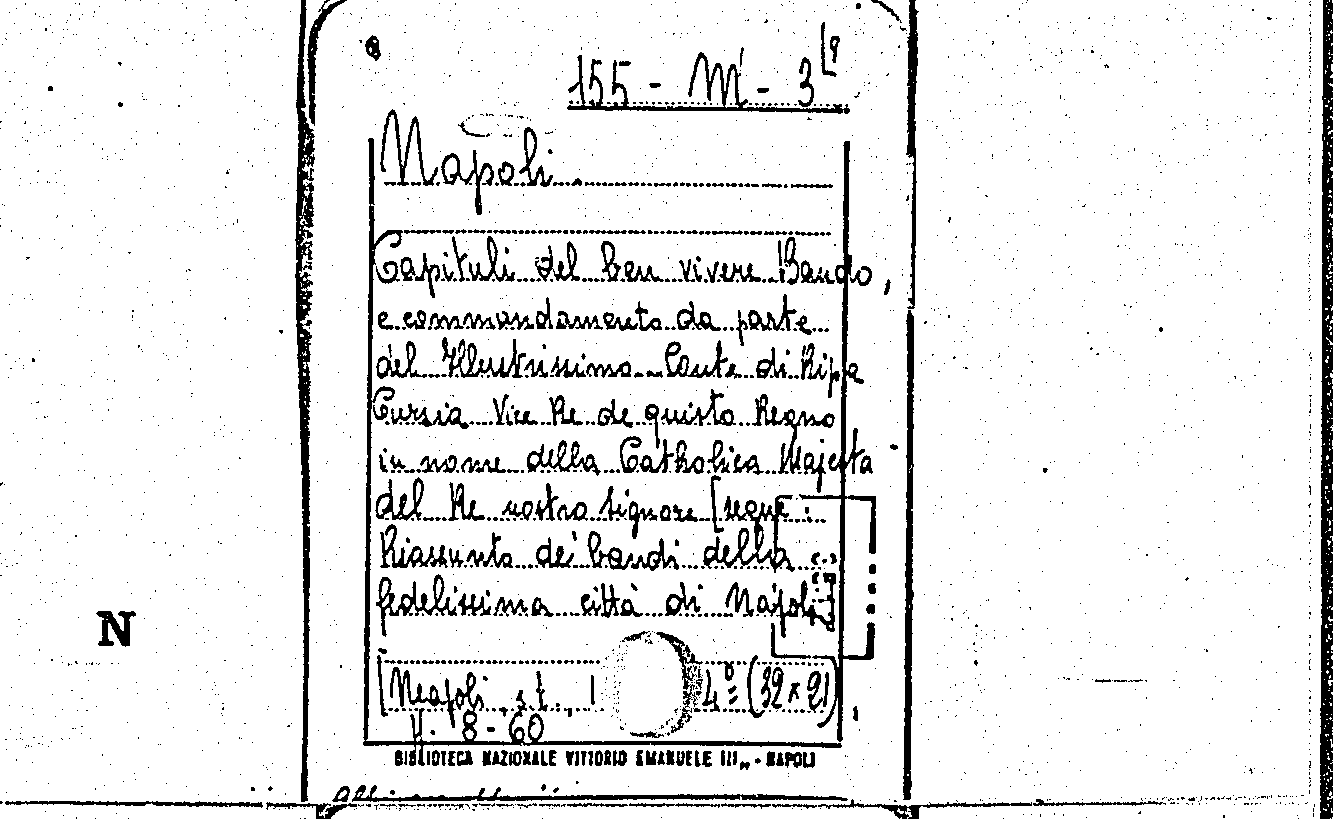 155 - M - 3
Napoli.
Capituli del ben vivere Bando,
e commandamento da parte
del Illustrissimo Conte di Ripa
Cursia Vice Re de questo Regno
in nome della Catholica Majesta
del Re nostro signore [segue:
Riassunto dei bandi della
fedelissima città di Napoli]
N
[Neapoli, s.t., 1 4º = (32 x 21)
H. 8-60
BIBLIOTECA NAZIONALE VITTORIO EMANUELE III„ - NAPOLI